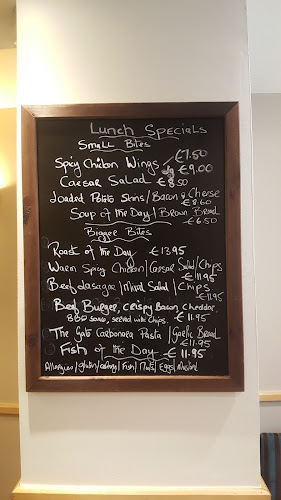 Lunch Specials
Small Bites
€7.50
Spicy Chicken Wings
€9.00
Caesar Salad €8.50
Loaded Potato Skins/Bacon & Cheese
€8.60
Soup of the Day/Brown Bread
€6.50
Bigger Bites
Roast of the Day €13.95
Warm Spicy Chicken/Caesar Salad/Chips
€11.95
Beef Lasagne/Mixed Salad/Chips
€11.95
Beef Burger, Crispy Bacon Cheddar,
BBQ sauce, served with Chips. €11.95
The Gate Carbonara Pasta/Garlic Bread
€11.95
Fish of the Day €11.95
Allergies/Gluten/Celery/Fish/Nuts/Eggs/